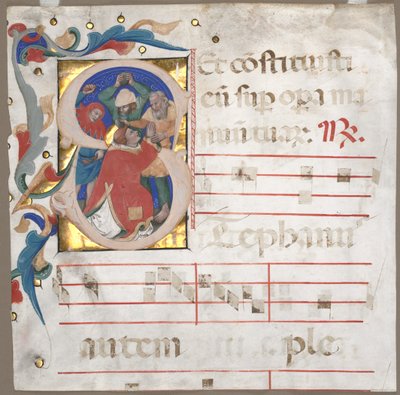 Et cōstituisti
eū sup opa ma
nuū tuaꝝ: ℟.
STephanu
autem ple